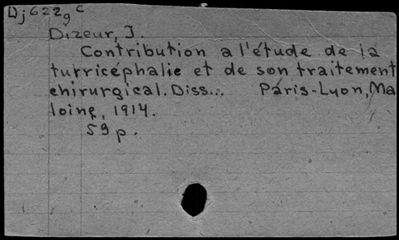 Dj622g c
Dizeur, J.
Contribution a l'étude de la
turricéphalie et de son traitement
chirurgical. Diss... Paris-Lyon, Ma
loine, 1914.
59 p.